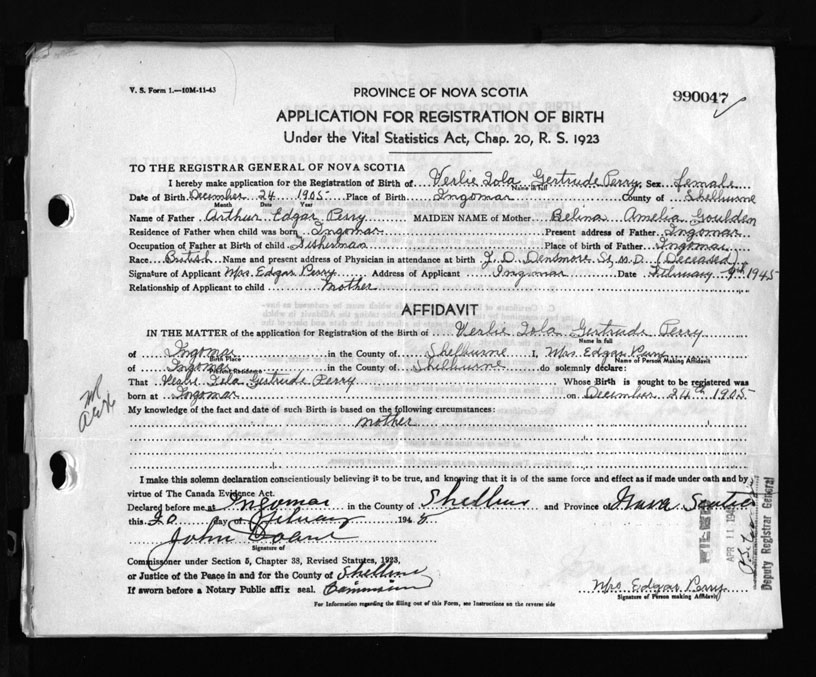 V. S. Form 1.—10M-11-43
PROVINCE OF NOVA SCOTIA
990047
APPLICATION FOR REGISTRATION OF BIRTH
Under the Vital Statistics Act, Chap. 20, R. S. 1923
TO THE REGISTRAR GENERAL OF NOVA SCOTIA
I hereby make application for the Registration of Birth of Verlie Iola Gertrude Perry. Sex female
Name in full
Date of Birth December 24 1905 Place of Birth Ingomar County of Shelburne
Month Date Year
Name of Father Arthur Edgar Perry MAIDEN NAME of Mother Belina Amelia Goulden
Residence of Father when child was born Ingomar Present address of Father Ingomar
Occupation of Father at Birth of child Fisherman Place of birth of Father Ingomar
Race British Name and present address of Physician in attendance at birth J. D. Densmore Sr, M.D. (Deceased)
Signature of Applicant Mrs. Edgar Perry Address of Applicant Ingomar Date February 9th 1945
Relationship of Applicant to child mother
AFFIDAVIT
IN THE MATTER of the application for Registration of the Birth of Verlie Iola Gertrude Perry
Name in full
of Ingomar in the County of Shelburne I, Mrs. Edgar Perry
Birth Place Name of Person Making Affidavit
of Ingomar in the County of Shelburne do solemnly declare:
Present Residence
That Verlie Iola Gertrude Perry Whose Birth is sought to be registered was
born at Ingomar on December 24th 1905
My knowledge of the fact and date of such Birth is based on the following circumstances:
mother
I make this solemn declaration conscientiously believing it to be true, and knowing that it is of the same force and effect as if made under oath and by
virtue of The Canada Evidence Act.
Declared before me at Ingomar in the County of Shelburne and Province of Nova Scotia
this 20 day of February 194
John
Signature of
Commissioner under Section 5, Chapter 33, Revised Statutes, 1923,
or Justice of the Peace in and for the County of Shelburne
If sworn before a Notary Public affix seal.
Mrs Edgar Perry
Signature of Person making Affidavit
For Information regarding the filling out of this Form, see Instructions on the reverse side
FILED
APR 11 194
Deputy Registrar General